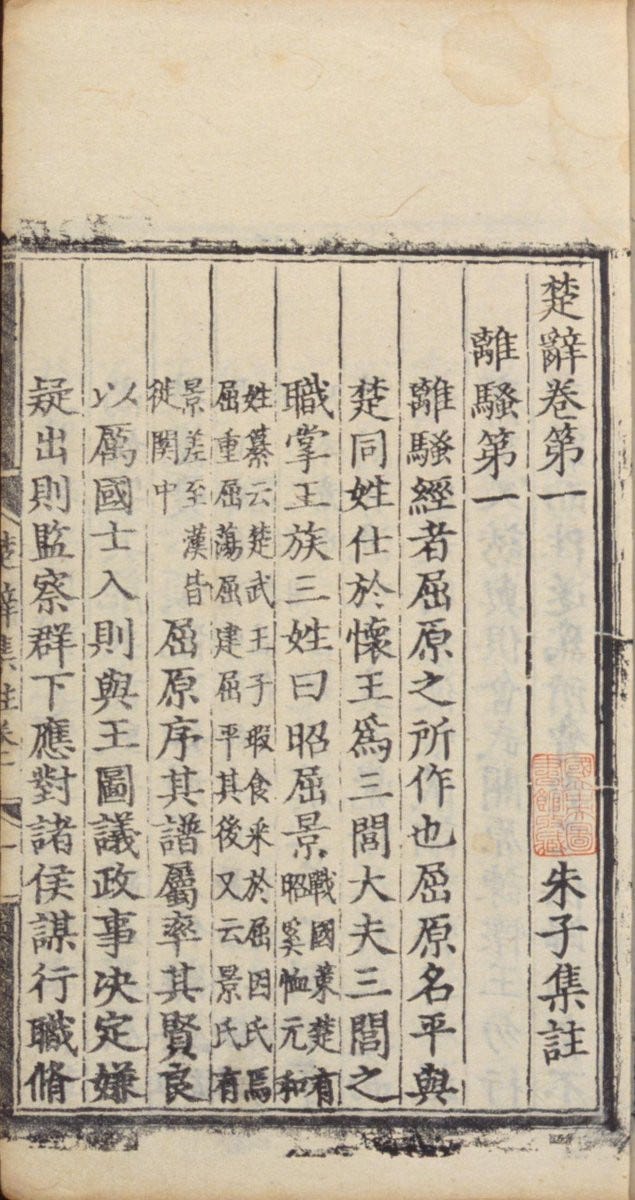 楚辭卷第一
朱子集註
離騷第一
離騷經者屈原之所作也屈原名平與
楚同姓仕於懷王爲三閭大夫三閭之
職掌王族三姓曰昭屈景
戰國策楚有
昭奚恤元和
姓纂云楚武王子瑕食采於屈因氏焉
屈重屈蕩屈建屈平其後又云景氏有
景差至漢皆
徙関中
屈原序其譜屬率其賢良
以厲國士入則與王圖議政事决定嫌
疑出則監察群下應對諸侯謀行職脩
楚辭集註卷一
一